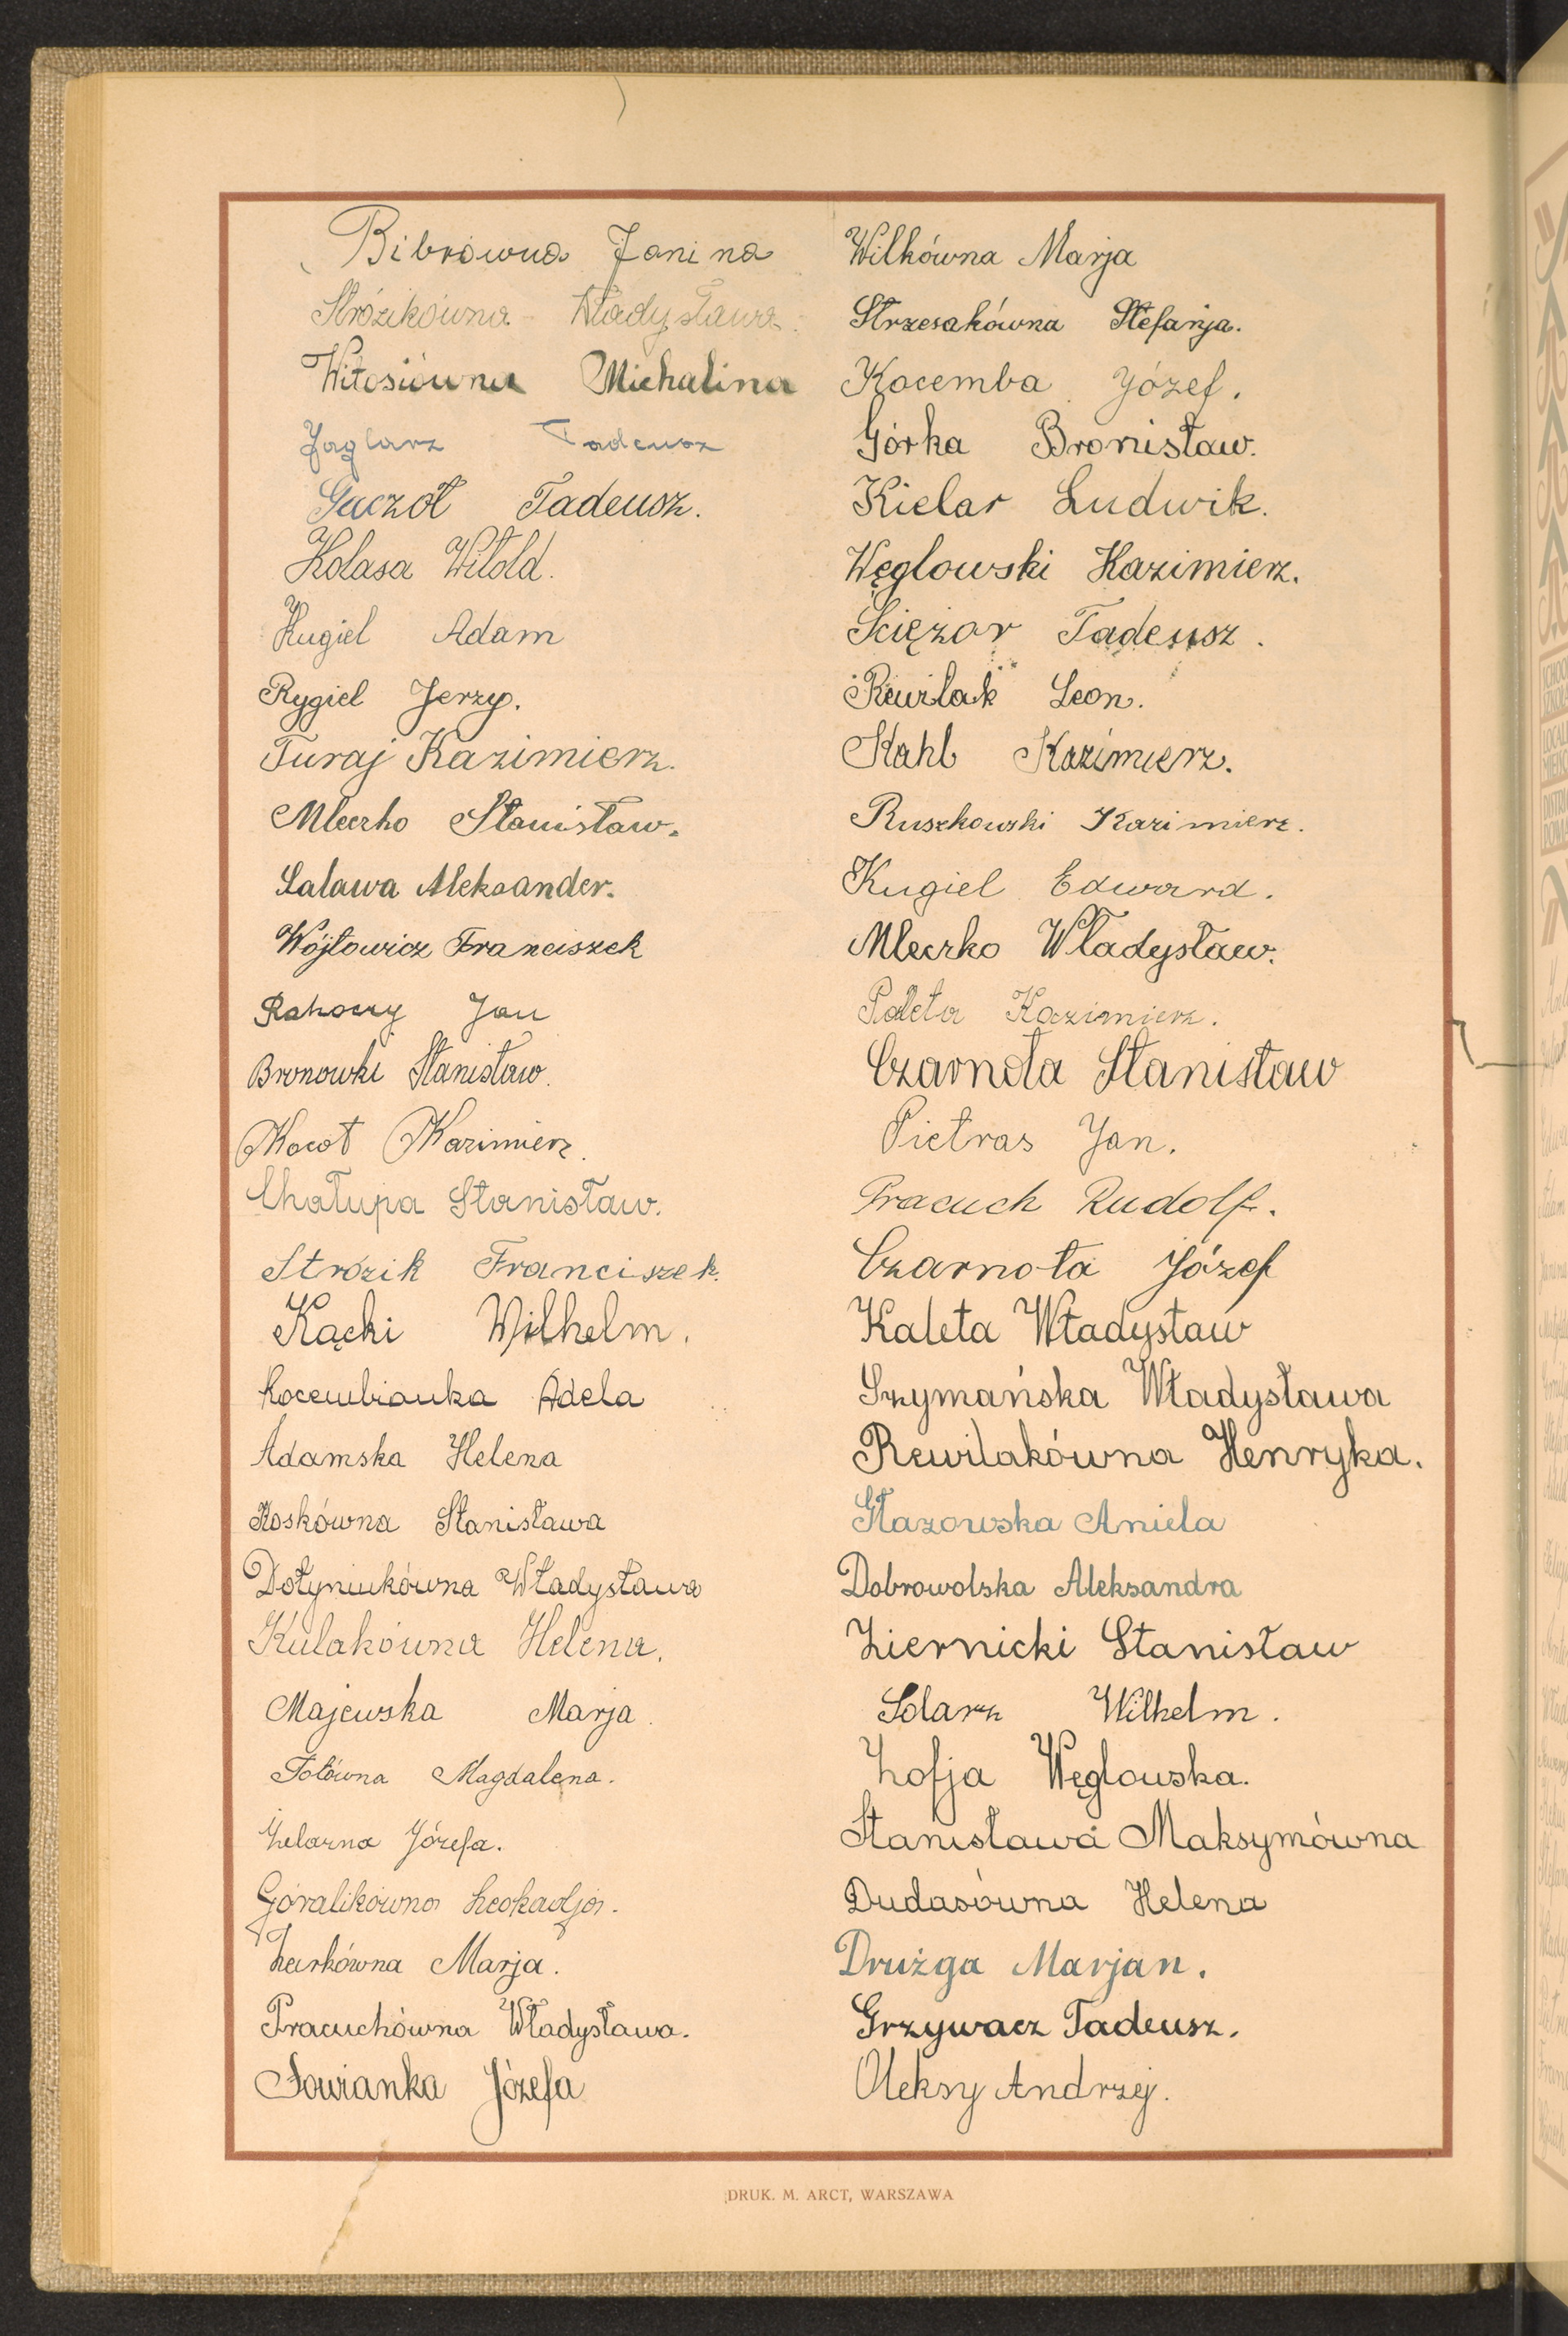 Bibrówna Janina
Stróżikówna Władysława
Witosiówna Michalina
Jaglarz Tadeusz
Guczoł Tadeusz.
Kolasa Witold.
Kugiel Adam
Rygiel Jerzy.
Turaj Kazimierz.
Mleczko Stanisław.
Salawa Aleksander.
Wójtowicz Franciszek
Rahowy Jan
Bronowki Stanisław.
Kocot Kazimierz.
Chałupa Stanisław.
Strózik Franciszek.
Kącki Wilhelm.
Kocembianka Adela
Adamska Helena
Koskówna Stanisława
Dołyniukówna Władysława
Kulakówna Helena.
Majewska Marja.
Magdalena.
Żelazna Józefa.
Góralikówna Leokadja.
Marja.
Pracuchówna Władysława.
Sowianka Józefa
Wilkówna Marja
Strzesakówna Stefanja.
Kocemba Józef.
Górka Bronisław.
Kielar Ludwik.
Węglowski Kazimierz.
Ściężor Tadeusz.
Rewilak Leon.
Stahl Kazimierz.
Ruszkowski Kazimierz.
Kugiel Edward.
Mleczko Władysław.
Paleta Kazimierz.
Czarnota Stanisław
Pietras Jan.
Pracuch Rudolf.
Czarnota Józef
Kaleta Władysław
Szymańska Władysława
Rewilakówna Henryka.
Głazowska Aniela
Dobrowolska Aleksandra
Ziernicki Stanisław
Solarz Wilhelm.
Zofja Węglowska.
Stanisława Maksymówna
Dudasówna Helena
Drużga Marjan.
Grzywacz Tadeusz.
Oleksy Andrzej.
DRUK. M. ARCT, WARSZAWA